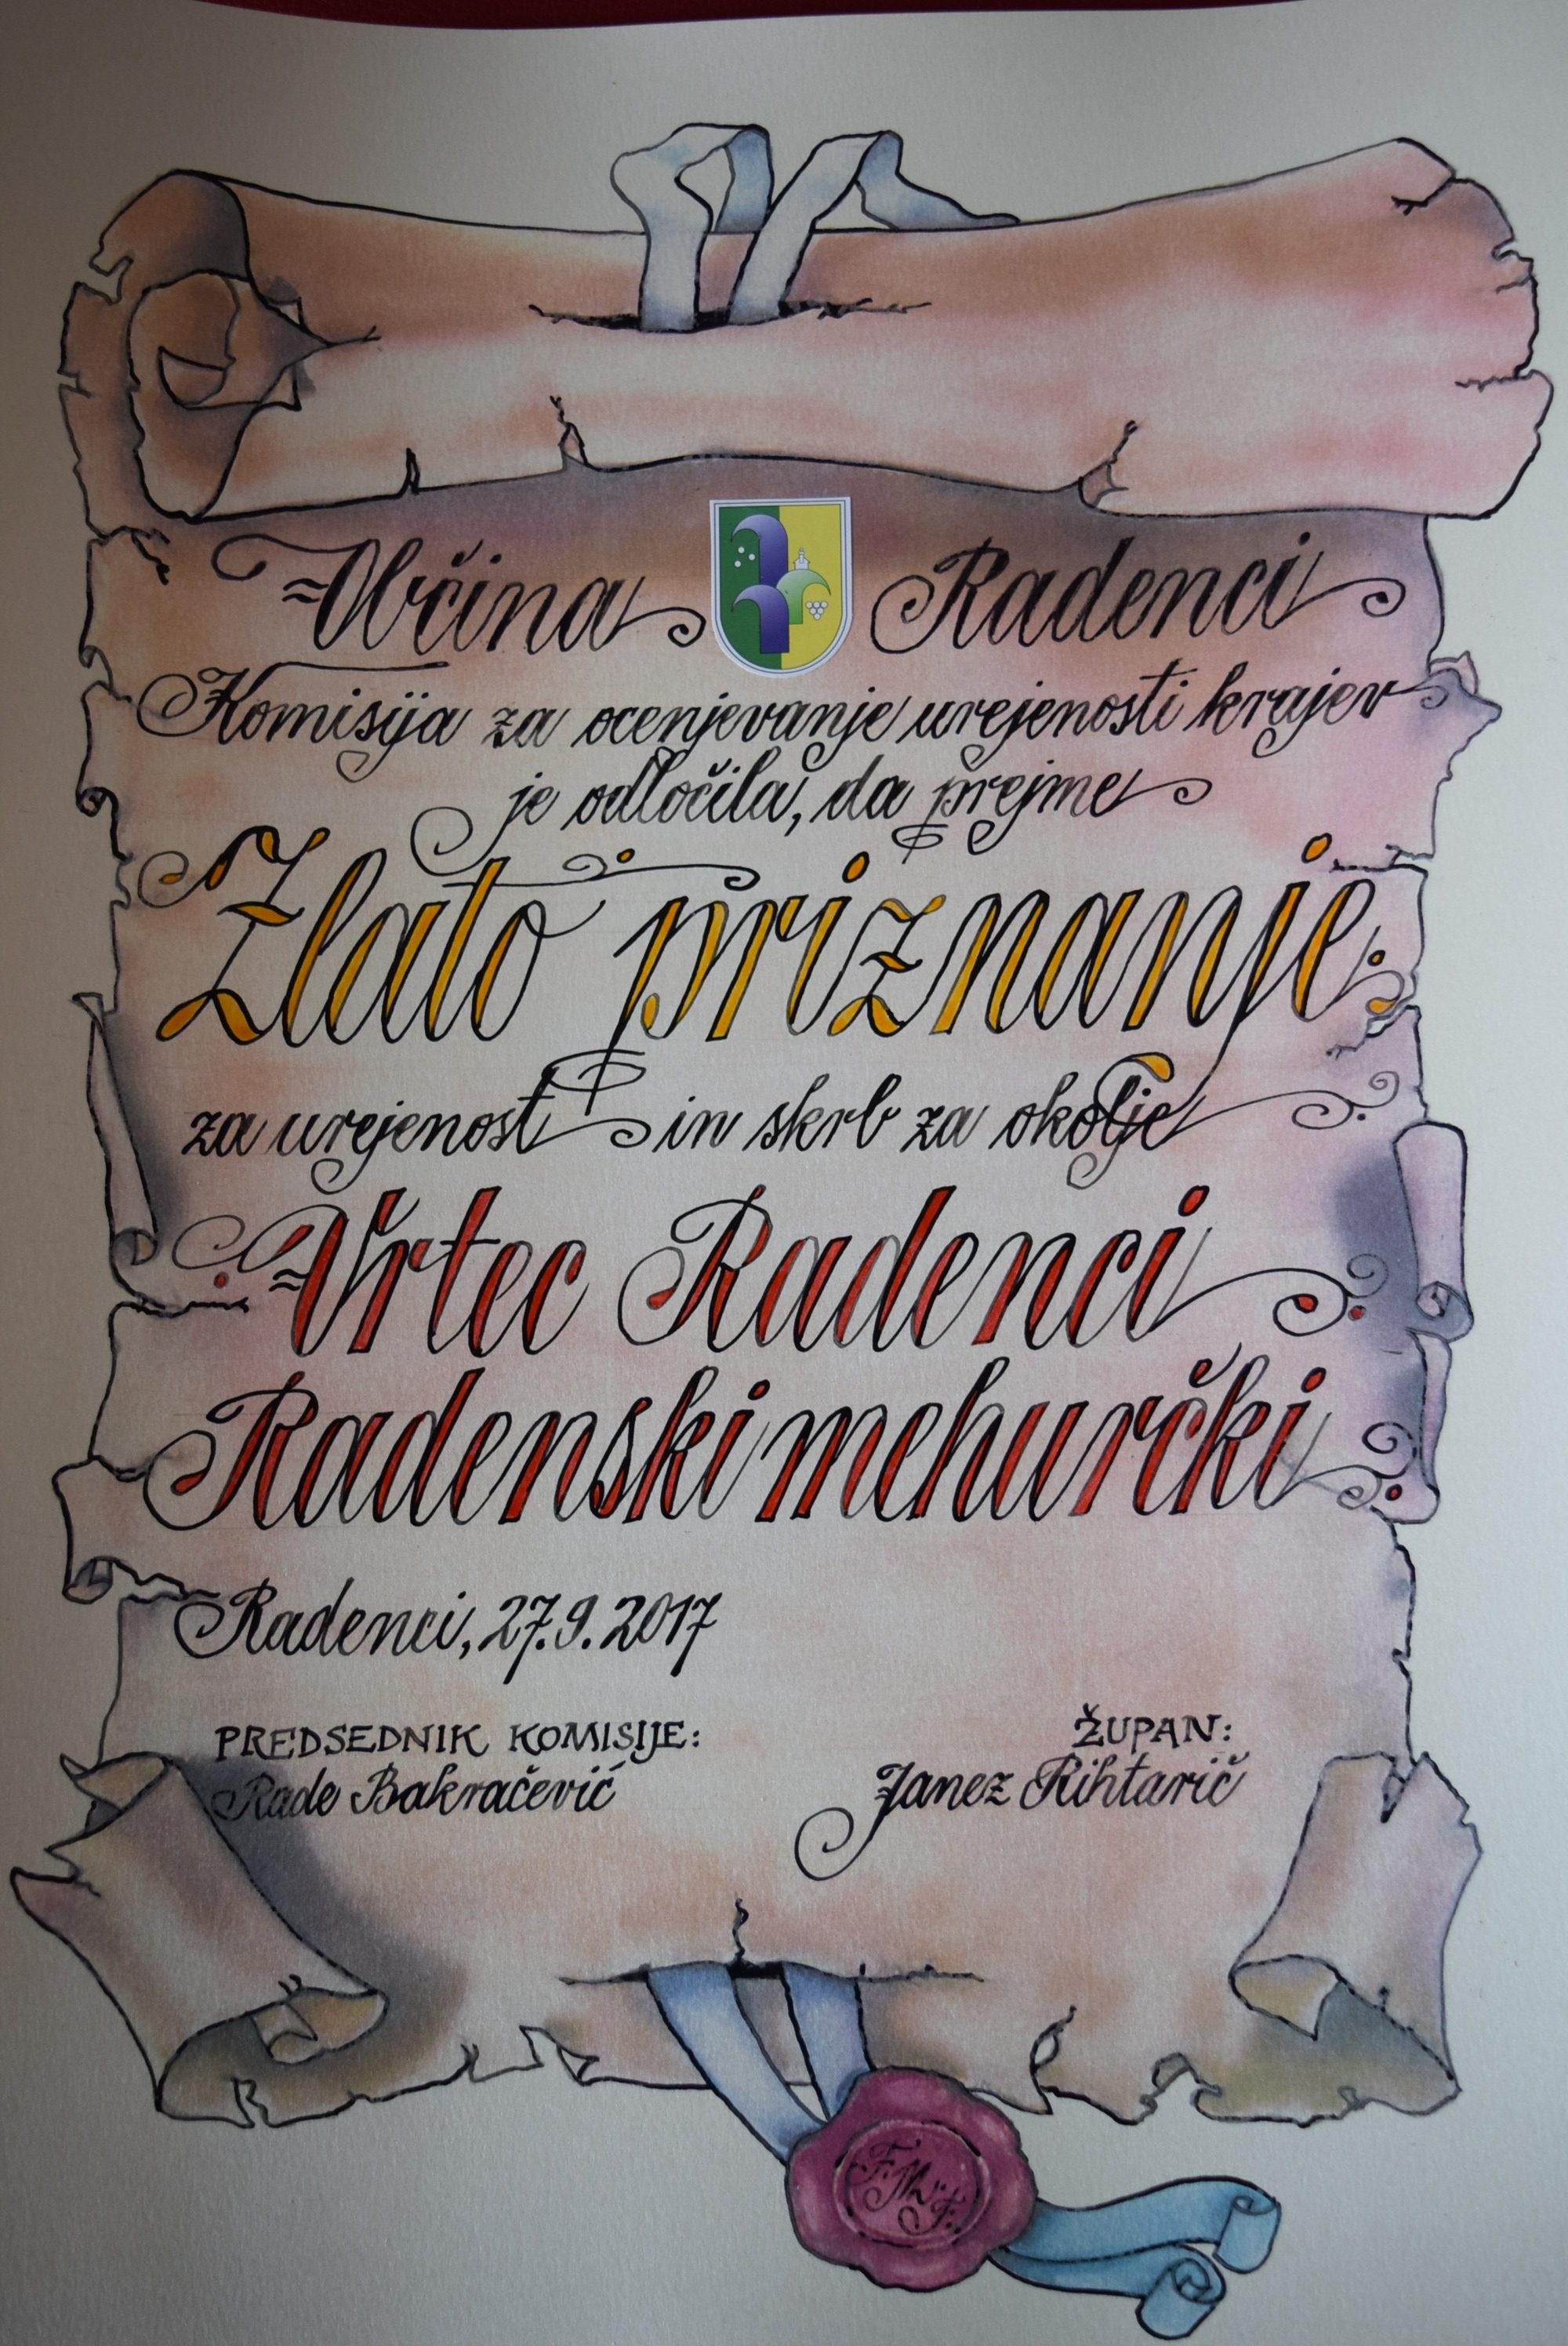 Občina Radenci
Komisija za ocenjevanje urejenosti krajev
je odločila, da prejme
Zlato priznanje
za urejenost in skrb za okolje
Vrtec Radenci
Radenski mehurčki
Radenci, 27.9.2017
PREDSEDNIK KOMISIJE:
Rade Bakračević
ŽUPAN:
Janez Rihtarič